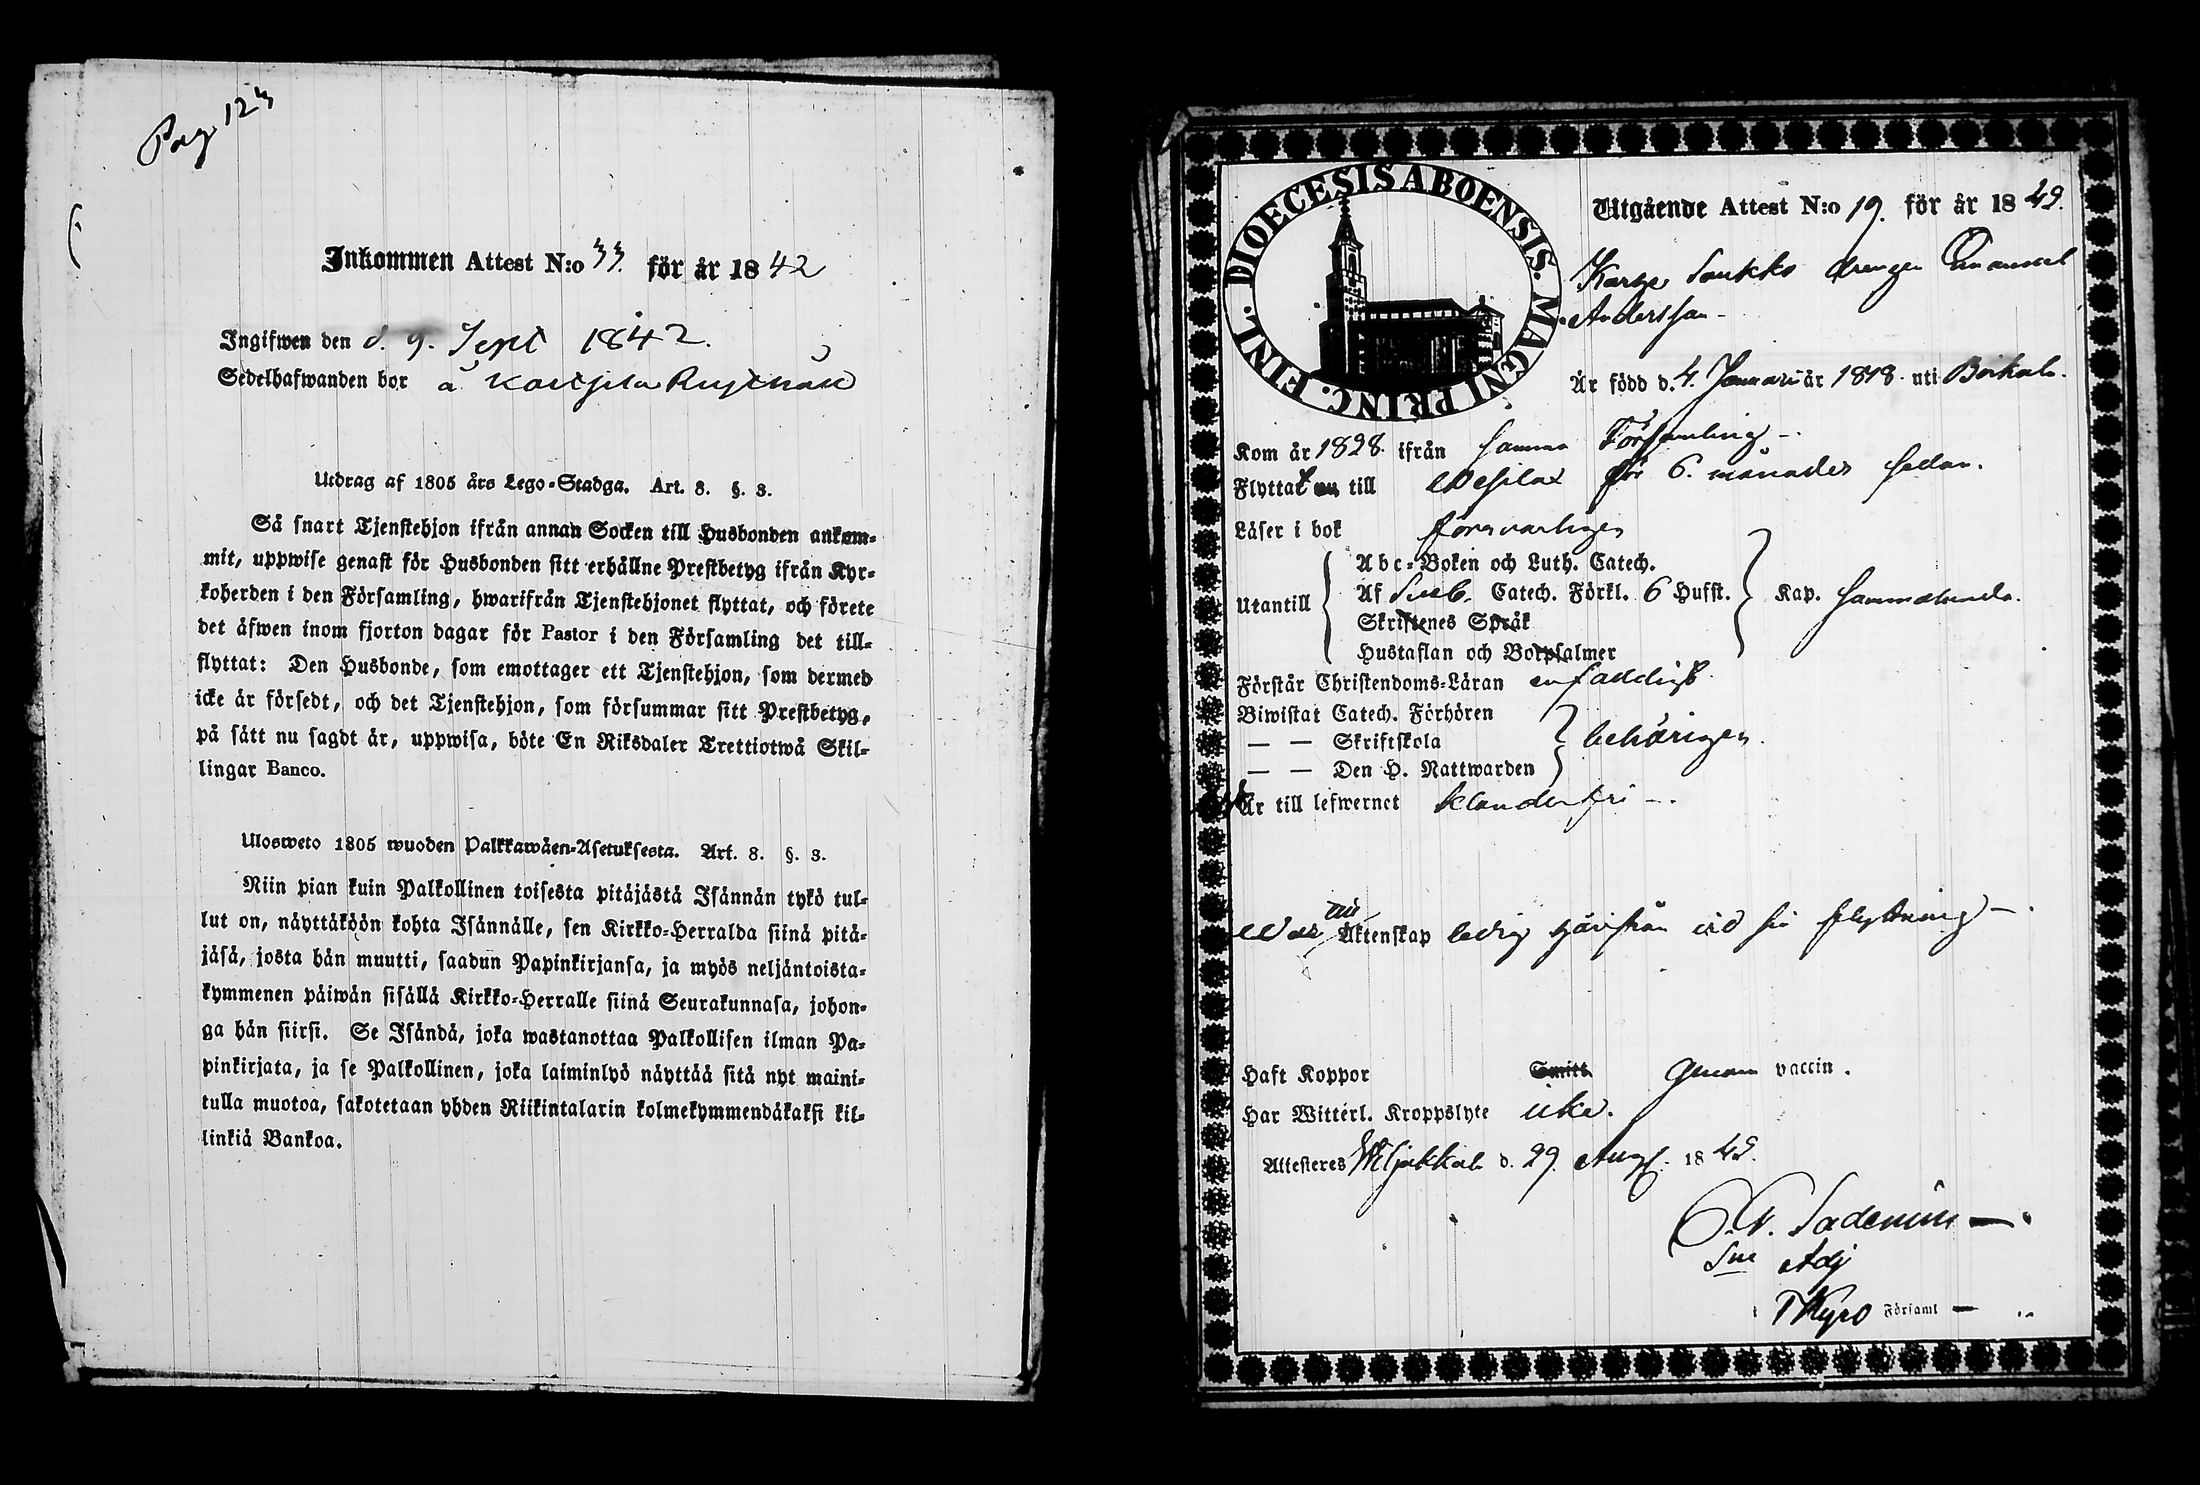 Pag 123
Inkommen Attest N:o 33. för år 1842
Ingifwen den d. 9. Sept 1842.
Sedelhafwanden bor å
Utdrag af 1805 års Lego-Stadga. Art. 8. §. 3.
Så snart Tjenstehjon ifrån annan Socken till Husbonden ankom-
mit, uppwise genast för Husbonden sitt erhållne Prestbetyg ifrån Kyr-
koherden i den Församling, hwarifrån Tjenstehjonet flyttat, och förete
det äfwen inom fjorton dagar för Pastor i den Församling det till-
flyttat: Den Husbonde, som emottager ett Tjenstehjon, som dermed
icke är försedt, och det Tjenstehjon, som försummar sitt Prestbetyg,
på sätt nu sagdt är, uppwisa, böte En Riksdaler Trettiotwå Skil-
lingar Banco.
Ulosweto 1805 wuoden Palkkawäen-Asetuksesta. Art. 8. §. 3.
Niin pian kuin Palkollinen toisesta pitäjästä Isännän tykö tul-
lut on, näyttäköön kohta Isännälle, sen Kirkko-Herralda siinä pitä-
jäsä, josta hän muutti, saadun Papinkirjansa, ja myös neljäntoista-
kymmenen päiwän sisällä Kirkko-Herralle siinä Seurakunnasa, johon-
ga hän siirsi. Se Isändä, joka wastanottaa Palkollisen ilman Pa-
pinkirjata, ja se Palkollinen, joka laiminlyö näyttää sitä nyt maini-
tulla muotoa, sakotetaan yhden Riikintalarin kolmekymmendäkaksi kil-
linkiä Bankoa.
DIOECESIS ABOENSIS. MAGNI PRINC. FINL.
Utgående Attest N:o 19. för år 1842.
drengen Emanuel
Andersson
Är född d. 4. Januarii år 1818 uti
Kom år 1828. ifrån samma Församling
Flyttat nu till Wesilax för 6. månader sedan.
Läser i bok försvarligen
Abc-Boken och Luth. Catech.
Utantill Af Sveb. Catech. Förkl. 6 Hufst. Kap. sammaledes.
Skriftenes Språk
Hustaflan och Botpsalmer
Förstår Christendoms-Läran enfaldigt
Biwistat Catech. Förhören
— — Skriftskola behörigen.
— — Den H. Nattwarden
Är till lefwernet klanderfri
War till Äktenskap ledig härifrån vid sin flyttning
Haft Koppor Smitt. genom vaccin.
Har Witterl. Kroppslyte icke.
Attesteras Wiljakkala d. 29. Aug. 1842.
Sadenius
Adj
i TKyro Församl